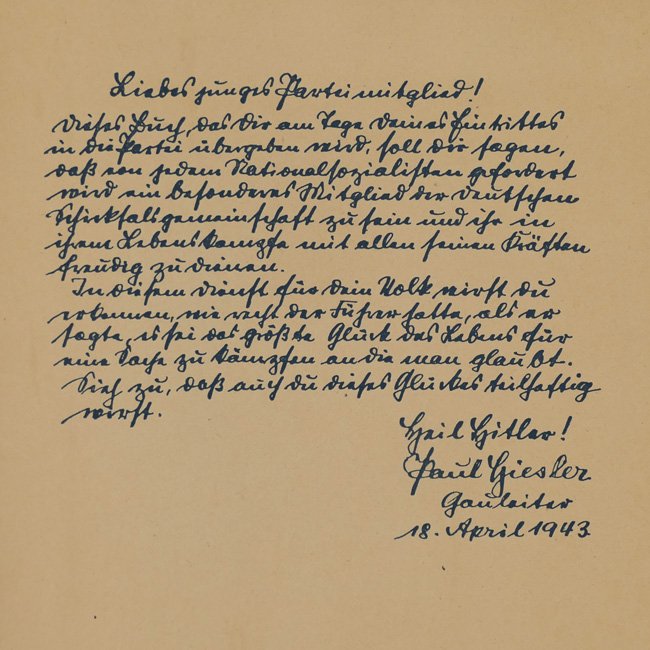 Liebes junges Parteimitglied!
Dieses Buch, das Dir am Tage Deines Eintrittes
in die Partei übergeben wird, soll dir sagen,
daß von jedem Nationalsozialisten gefordert
wird ein besonderes Mitglied der deutschen
Schicksalsgemeinschaft zu sein und ihr in
ihrem Lebenskampfe mit allen seinen Kräften
freudig zu dienen.
In diesem Dienst für dein Volk wirst du
erkennen, wie recht der Führer hatte, als er
sagte, es sei das größte Glück des Lebens für
eine Sache zu kämpfen an die man glaubt.
Sieh zu, daß auch du dieses Glückes teilhaftig
wirst.
Heil Hitler!
Paul Giesler
Gauleiter
18. April 1943